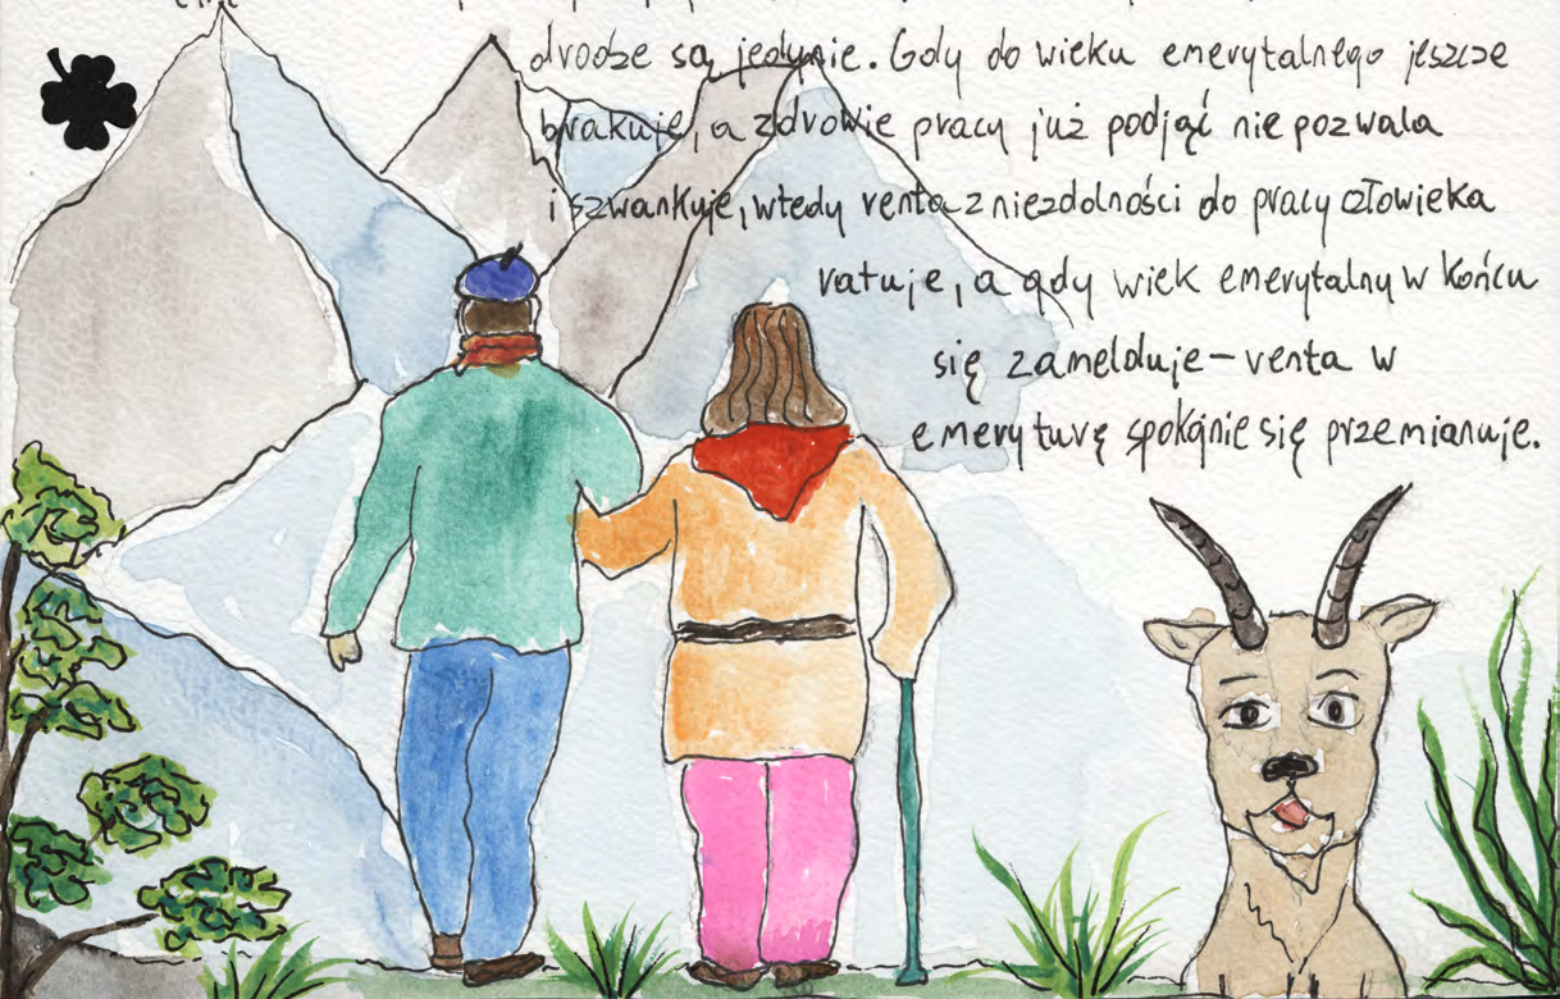 drodze są jedynie. Gdy do wieku emerytalnego jeszcze
brakuje, a zdrowie pracy już podjąć nie pozwala
i szwankuje, wtedy renta z niezdolności do pracy człowieka
ratuje, a gdy wiek emerytalny w końcu
się zamelduje – renta w
emeryturę spokojnie się przemianuje.